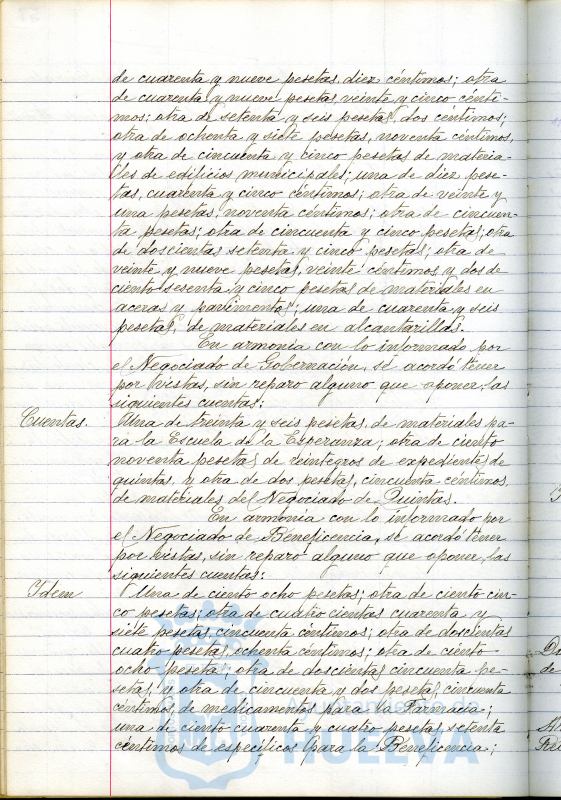 de cuarenta y nueve pesetas, diez céntimos; otra
de cuarenta y nueve pesetas, veinte y cinco cénti-
mos; otra de setenta y seis pesetas, dos céntimos;
otra de ochenta y siete pesetas, noventa céntimos,
y otra de cincuenta y cinco pesetas de materia-
les de edificios municipales; una de diez pese-
tas, cuarenta y cinco céntimos; otra de veinte y
una pesetas, noventa céntimos; otra de cincuen-
ta pesetas; otra de cincuenta y cinco pesetas; otra
de doscientas setenta y cinco pesetas; otra de
veinte y nueve pesetas, veinte céntimos y dos de
ciento sesenta y cinco pesetas de materiales en
aceras y pavimentos; una de cuarenta y seis
pesetas, de materiales en alcantarillas.
En armonía con lo informado por
el Negociado de Gobernación, se acordó tener
por vistas, sin reparo alguno que oponer, las
siguientes cuentas:
Cuentas.
Una de treinta y seis pesetas, de materiales pa-
ra la Escuela de la Esperanza; otra de ciento
noventa pesetas de reintegros de expedientes de
quintas, y otra de dos pesetas, cincuenta céntimos,
de materiales del Negociado de Quintas.
En armonía con lo informado por
el Negociado de Beneficencia, se acordó tener
por vistas, sin reparo alguno que oponer, las
siguientes cuentas:
Idem
Una de ciento ocho pesetas; otra de ciento cin-
co pesetas; otra de cuatrocientas cuarenta y
siete pesetas, cincuenta céntimos; otra de doscientas
cuatro pesetas, ochenta céntimos; otra de ciento
ocho pesetas; otra de doscientas cincuenta pe-
setas, y otra de cincuenta y dos pesetas, cincuenta
céntimos, de medicamentos para la Farmacia;
una de ciento cuarenta y cuatro pesetas setenta
céntimos de específicos para la Beneficencia;
HUELVA